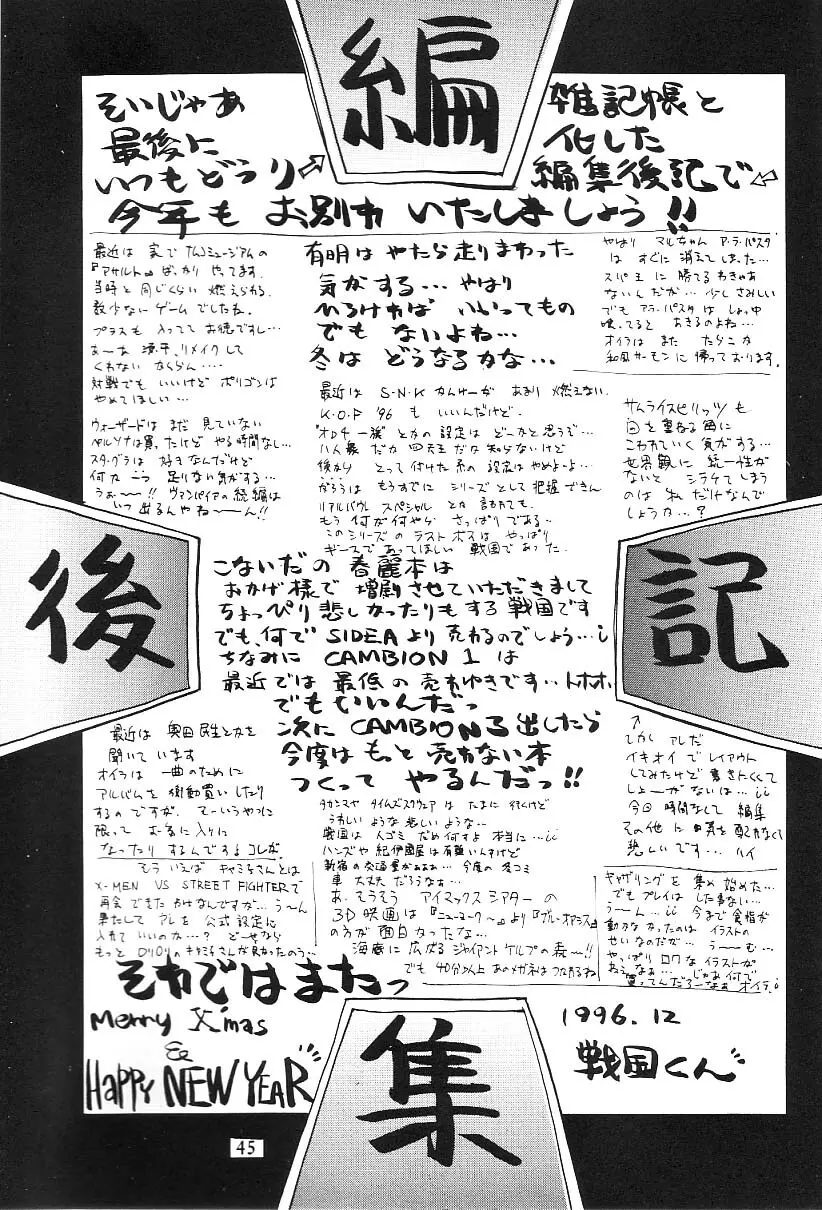 編
集
後
記
そいじゃあ
最後に
いつもどうり⇨
雑記帳と
化した
編集後記で⇦
今年も お別れ いたしましょう!!
最近は 家で ナムコミュージアムの
『アサルト』ばっかり やってます.
当時と 同じくらい 燃えられる.
数少ないゲームでしたね.
プラスも 入ってて お徳ですし…
あーあ 源平、リメイクして
くれない ならん….
対戦でも いいけど ポリゴンは
やめてほしい…
ウィザードは まだ 見ていない
ペルソナは買ったけど やる時間なし…
スタ・グラは 好きなんだけど
何か一つ 足りない気がする…
うぉ〜〜!! ヴァンパイアの続編は
いつ 出るんやね〜〜ん!!
有明は やたら走りまわった
気がする… やはり
ひろければ いいってもの
でも ないよね…
冬は どうなるかな…
やはり マルちゃん ア・ラ・パスタ
は すぐに 消えてしまった…
スパ王 に 勝てるわきゃあ
ないんだが… 少しさみしい
でも アラ・パスタは しょっ中
喰ってると あきるのよね…
オイラは また たらこか
和風サーモンに 帰っております.
最近は S-N-K かんけーが あまり 燃えない.
K.O.F '96 も いいんだけど.
"オロチ一族" とかの設定は どーかと思うぞ…
八人衆 だか 四天王 だか 知らないけど
後から とって付けた系の 設定は やめよーよ…
がろうは もうすでに シリーズとして 把握できん
リアルバウト スペシャル とか 言われても.
もう 何が何やら さっぱりである〜
このシリーズの ラスト ボスは やっぱり
ギースで あってほしい 戦国であった.
サムライスピリッツも
回を重ねる毎に
こわれていく 気がする…
世界観に 統一性が
ないと シラケてしまう
のは 私だけなんで
しょうか…?
こないだの 春麗本は
おかげ様で 増刷させていただきまして
ちょっぴり悲しかったりもする戦国です
でも、何で SIDEAより 売れるのでしょう…¡
ちなみに CAMBION 1 は
最近では 最低の 売れゆきです‥トホホ.
でもいいんだっ
次に CAMBION 3 出したら
今度は もっと 売れない本
つくって やるんだっ!!
最近は 奥田民生とかを
聞いて います
オイラは 一曲のために
アルバムを 衝動買い したり
するの ですが、 そーいうやつに
限って お気に入りに
なったり するんですよ コレが.
↑
しかし アレだ
イキオイで レイアウト
してみたけど 書きにくくて
しょーがないは…¡¡
今回 時間なくて 編集
その他に 日景を 配れなくて
悲しいです… ハイ
タカシマヤ タイムズスクウェア は たまに 行くけど
うれしい ような 悲しいような‥
戦国は 人ゴミ だめ何すよ 本当に…¡¡
ハンズや 紀伊國屋は 有難いんすけど
新宿の交通量がぁぁぁ… 今度の 冬コミ
車 大丈夫 だろうなぁ…
あ、そうそう アイマックスシアター の
3D 映画は 『ニューヨーク〜』より『ブルー・オアシス』
の方が 面白かったな…
海底に 広がる ジャイアント ケルプの森〜〜!!
でも 40分以上 あのメガネは つかれるね
そう いえば キャミちさんとは
X-MEN VS STREET FIGHTERで
再会できた わけなしですが… う〜ん
果たして アレを 公式設定に
入れて いいのか…? どーせなら
もっと ロリロリの キャミちさんが 良かったのう…
ギャザリングを 集め始めた…
でも プレイは した事ない…
う〜ん…¡¡ 今まで 食指が
動かなかったのは イラストの
せいなのだが… う〜む…
やっぱり ロクな イラストが
ねぇなぁ… じゃあ 何で
買ってんだろーなぁ オイラ.¡
それではまたっ
Merry X'mas
&
HAPPY NEW YEAR
1996.12
戦国くん
45